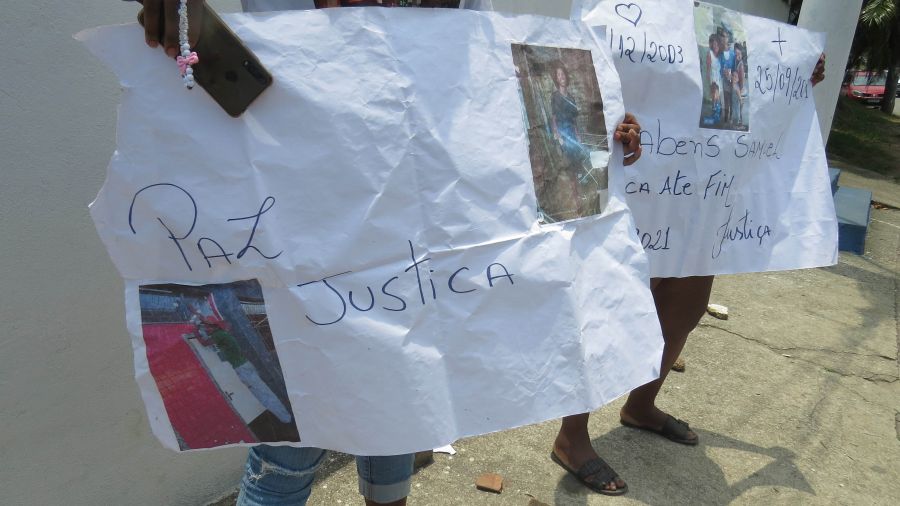 Paz
Justica
/12/2003
+
25/09/20
Abens Samiel
ca Ate Fim
2021 Justiça